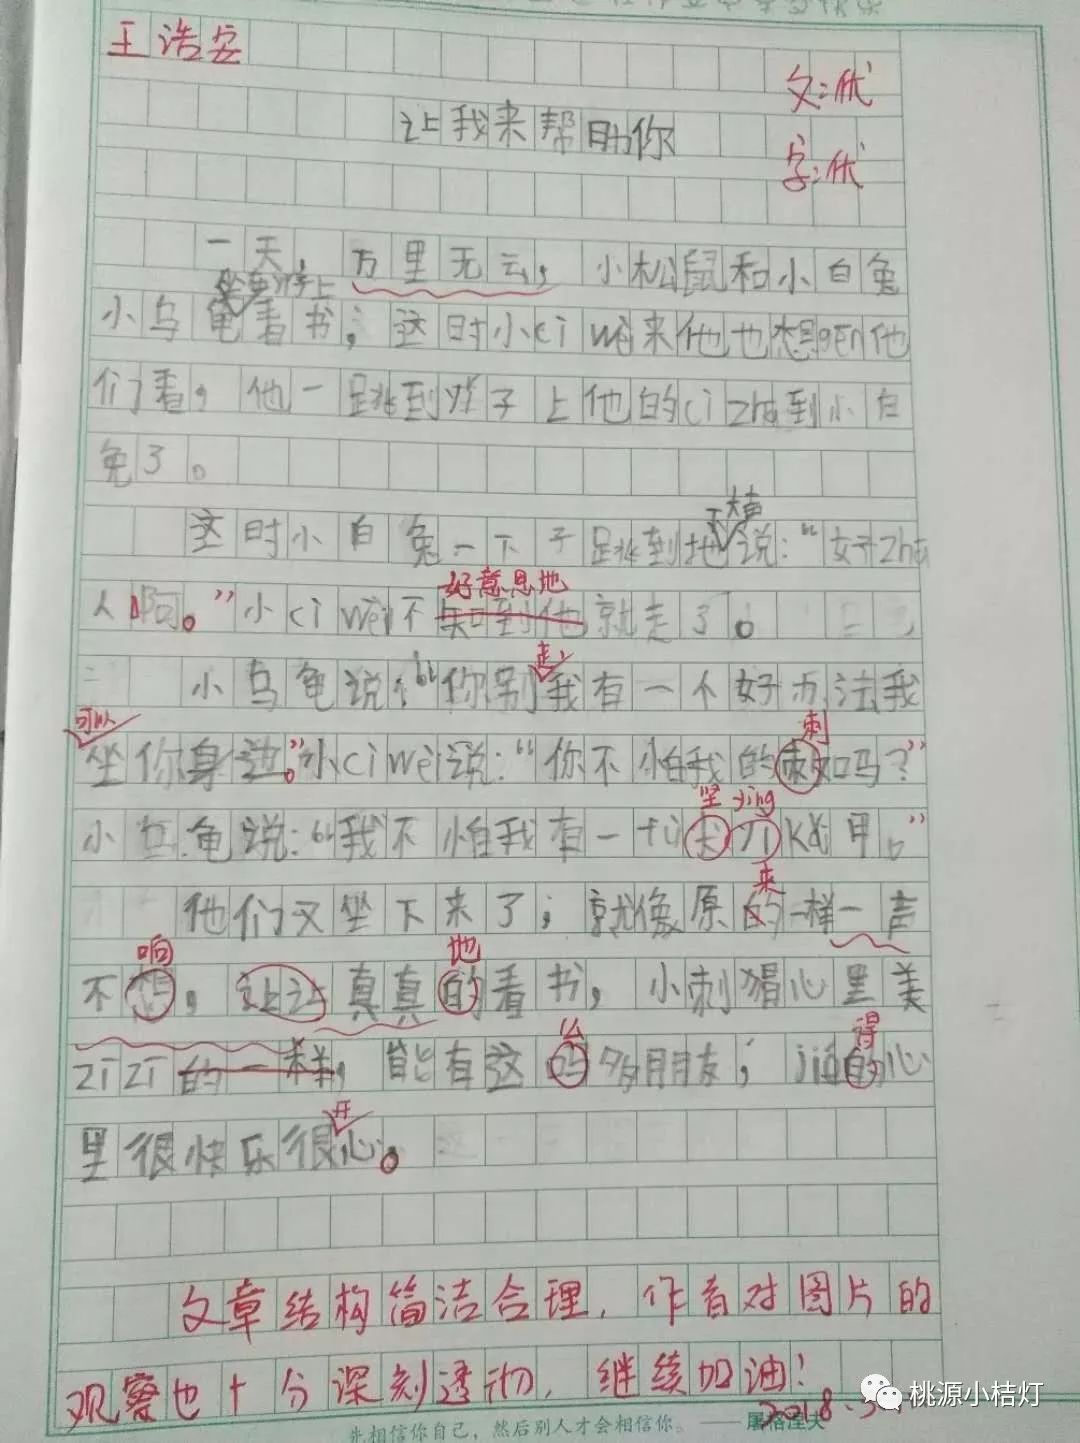 王浩安
文:优
让我来帮助你
字:优
一天,万里无云,小松鼠和小白兔
坐在凳子上
小乌龟看书;这时小ci wèi来他也想gēn他
们看,他一跳到凳子上他的ci zhā到小白
兔了。
大声
这时小白兔一下子跳到地说:“好zhā
好意思地
人啊。”小ci wèi不知到他就走了。
走,
小乌龟说:“你别我有一个好办法我
可以
刺
坐你身边。”小ci wèi说:“你不怕我的刺吗?”
坚 yìng
小乌龟说:“我不怕我有一
甲。”
来
他们又坐下来了;就像原的一样一声
响
地
不想,认真真的看书,小刺猬心里美
么
得
zī zī的一样,能有这吗多朋友; jiǎ的心
开
里很快乐很心。
文章结构简洁合理,作者对图片的
观察也十分深刻透彻,继续加油!
桃源小桔灯
先相信你自己,然后别人才会相信你。——屠格涅夫